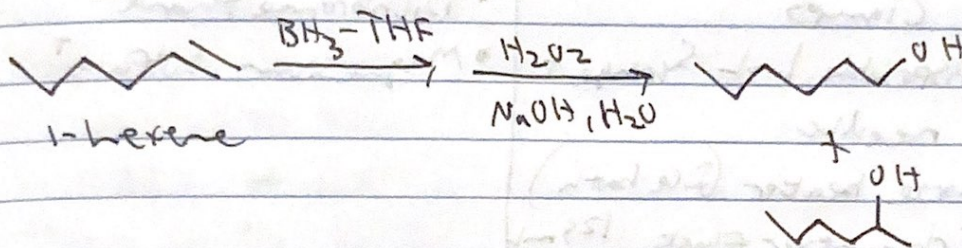 BH3-THF
H2O2
OH
NaOH, H2O
1-hexene
+
OH